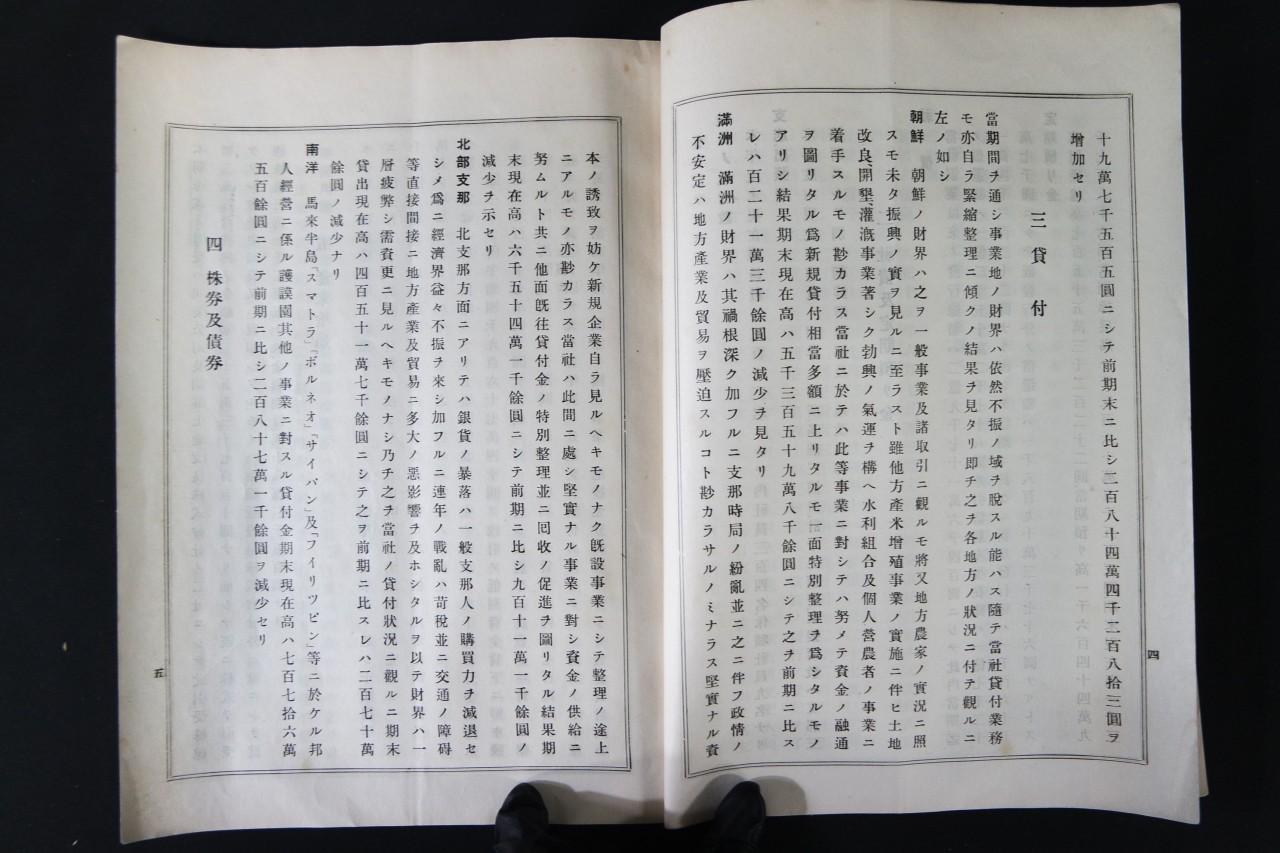 十九萬七千五百五圓ニシテ前期末ニ比シ三百八十四萬四千二百八拾三圓ヲ
增加セリ
三 貸 付
當期間ヲ通シ事業地ノ財界ハ依然不振ノ域ヲ脫スル能ハス隨テ當社貸付業務
モ亦自ラ緊縮整理ニ傾クノ結果ヲ見タリ卽チ之ヲ各地方ノ狀況ニ付テ觀ルニ
左ノ如シ
朝鮮 朝鮮ノ財界ハ之ヲ一般事業及諸取引ニ觀ルモ將又地方農家ノ實況ニ照
スモ未タ振興ノ實ヲ見ルニ至ラスト雖他方產米增殖事業ノ實施ニ伴ヒ土地
改良、開墾、灌漑事業著シク勃興ノ氣運ヲ構ヘ水利組合及個人營農者ノ事業ニ
着手スルモノ尠カラス當社ニ於テハ此等事業ニ對シテハ努メテ資金ノ融通
ヲ圖リタル爲新規貸付相當多額ニ上リタルモ一面特別整理ヲ爲シタルモノ
アリシ結果期末現在高ハ五千三百五十九萬八千餘圓ニシテ之ヲ前期ニ比ス
レハ百二十一萬三千餘圓ノ減少ヲ見タリ
滿洲 滿洲ノ財界ハ其禍根深ク加フルニ支那時局ノ紛亂並ニ之ニ伴フ政情ノ
不安定ハ地方產業及貿易ヲ壓迫スルコト尠カラサルノミナラス堅實ナル資
四
本ノ誘致ヲ妨ケ新規企業自ラ見ルヘキモノナク旣設事業ニシテ整理ノ途上
ニアルモノ亦尠カラス當社ハ此間ニ處シ堅實ナル事業ニ對シ資金ノ供給ニ
努ムルト共ニ他面旣往貸付金ノ特別整理並ニ囘收ノ促進ヲ圖リタル結果期
末現在高ハ六千五十四萬一千餘圓ニシテ前期ニ比シ九百十一萬一千餘圓ノ
減少ヲ示セリ
北部支那 北支那方面ニアリテハ銀貨ノ暴落ハ一般支那人ノ購買力ヲ減退セ
シメ爲ニ經濟界益々不振ヲ來シ加フルニ連年ノ戰亂ハ苛稅並ニ交通ノ障碍
等直接間接ニ地方產業及貿易ニ多大ノ惡影響ヲ及ホシタルヲ以テ財界ハ一
層疲弊シ需資更ニ見ルヘキモノナシ乃チ之ヲ當社ノ貸付狀況ニ觀ルニ期末
貸出現在高ハ四百五十一萬七千餘圓ニシテ之ヲ前期ニ比スレハ二百七十萬
餘圓ノ減少ナリ
南洋 馬來半島「スマトラ」「ボルネオ」「サイパン」及「フイリツピン」等ニ於ケル邦
人經營ニ係ル護謨園其他ノ事業ニ對スル貸付金期末現在高ハ七百七拾六萬
五百餘圓ニシテ前期ニ比シ二百八十七萬一千餘圓ヲ減少セリ
四 株券及債券
五